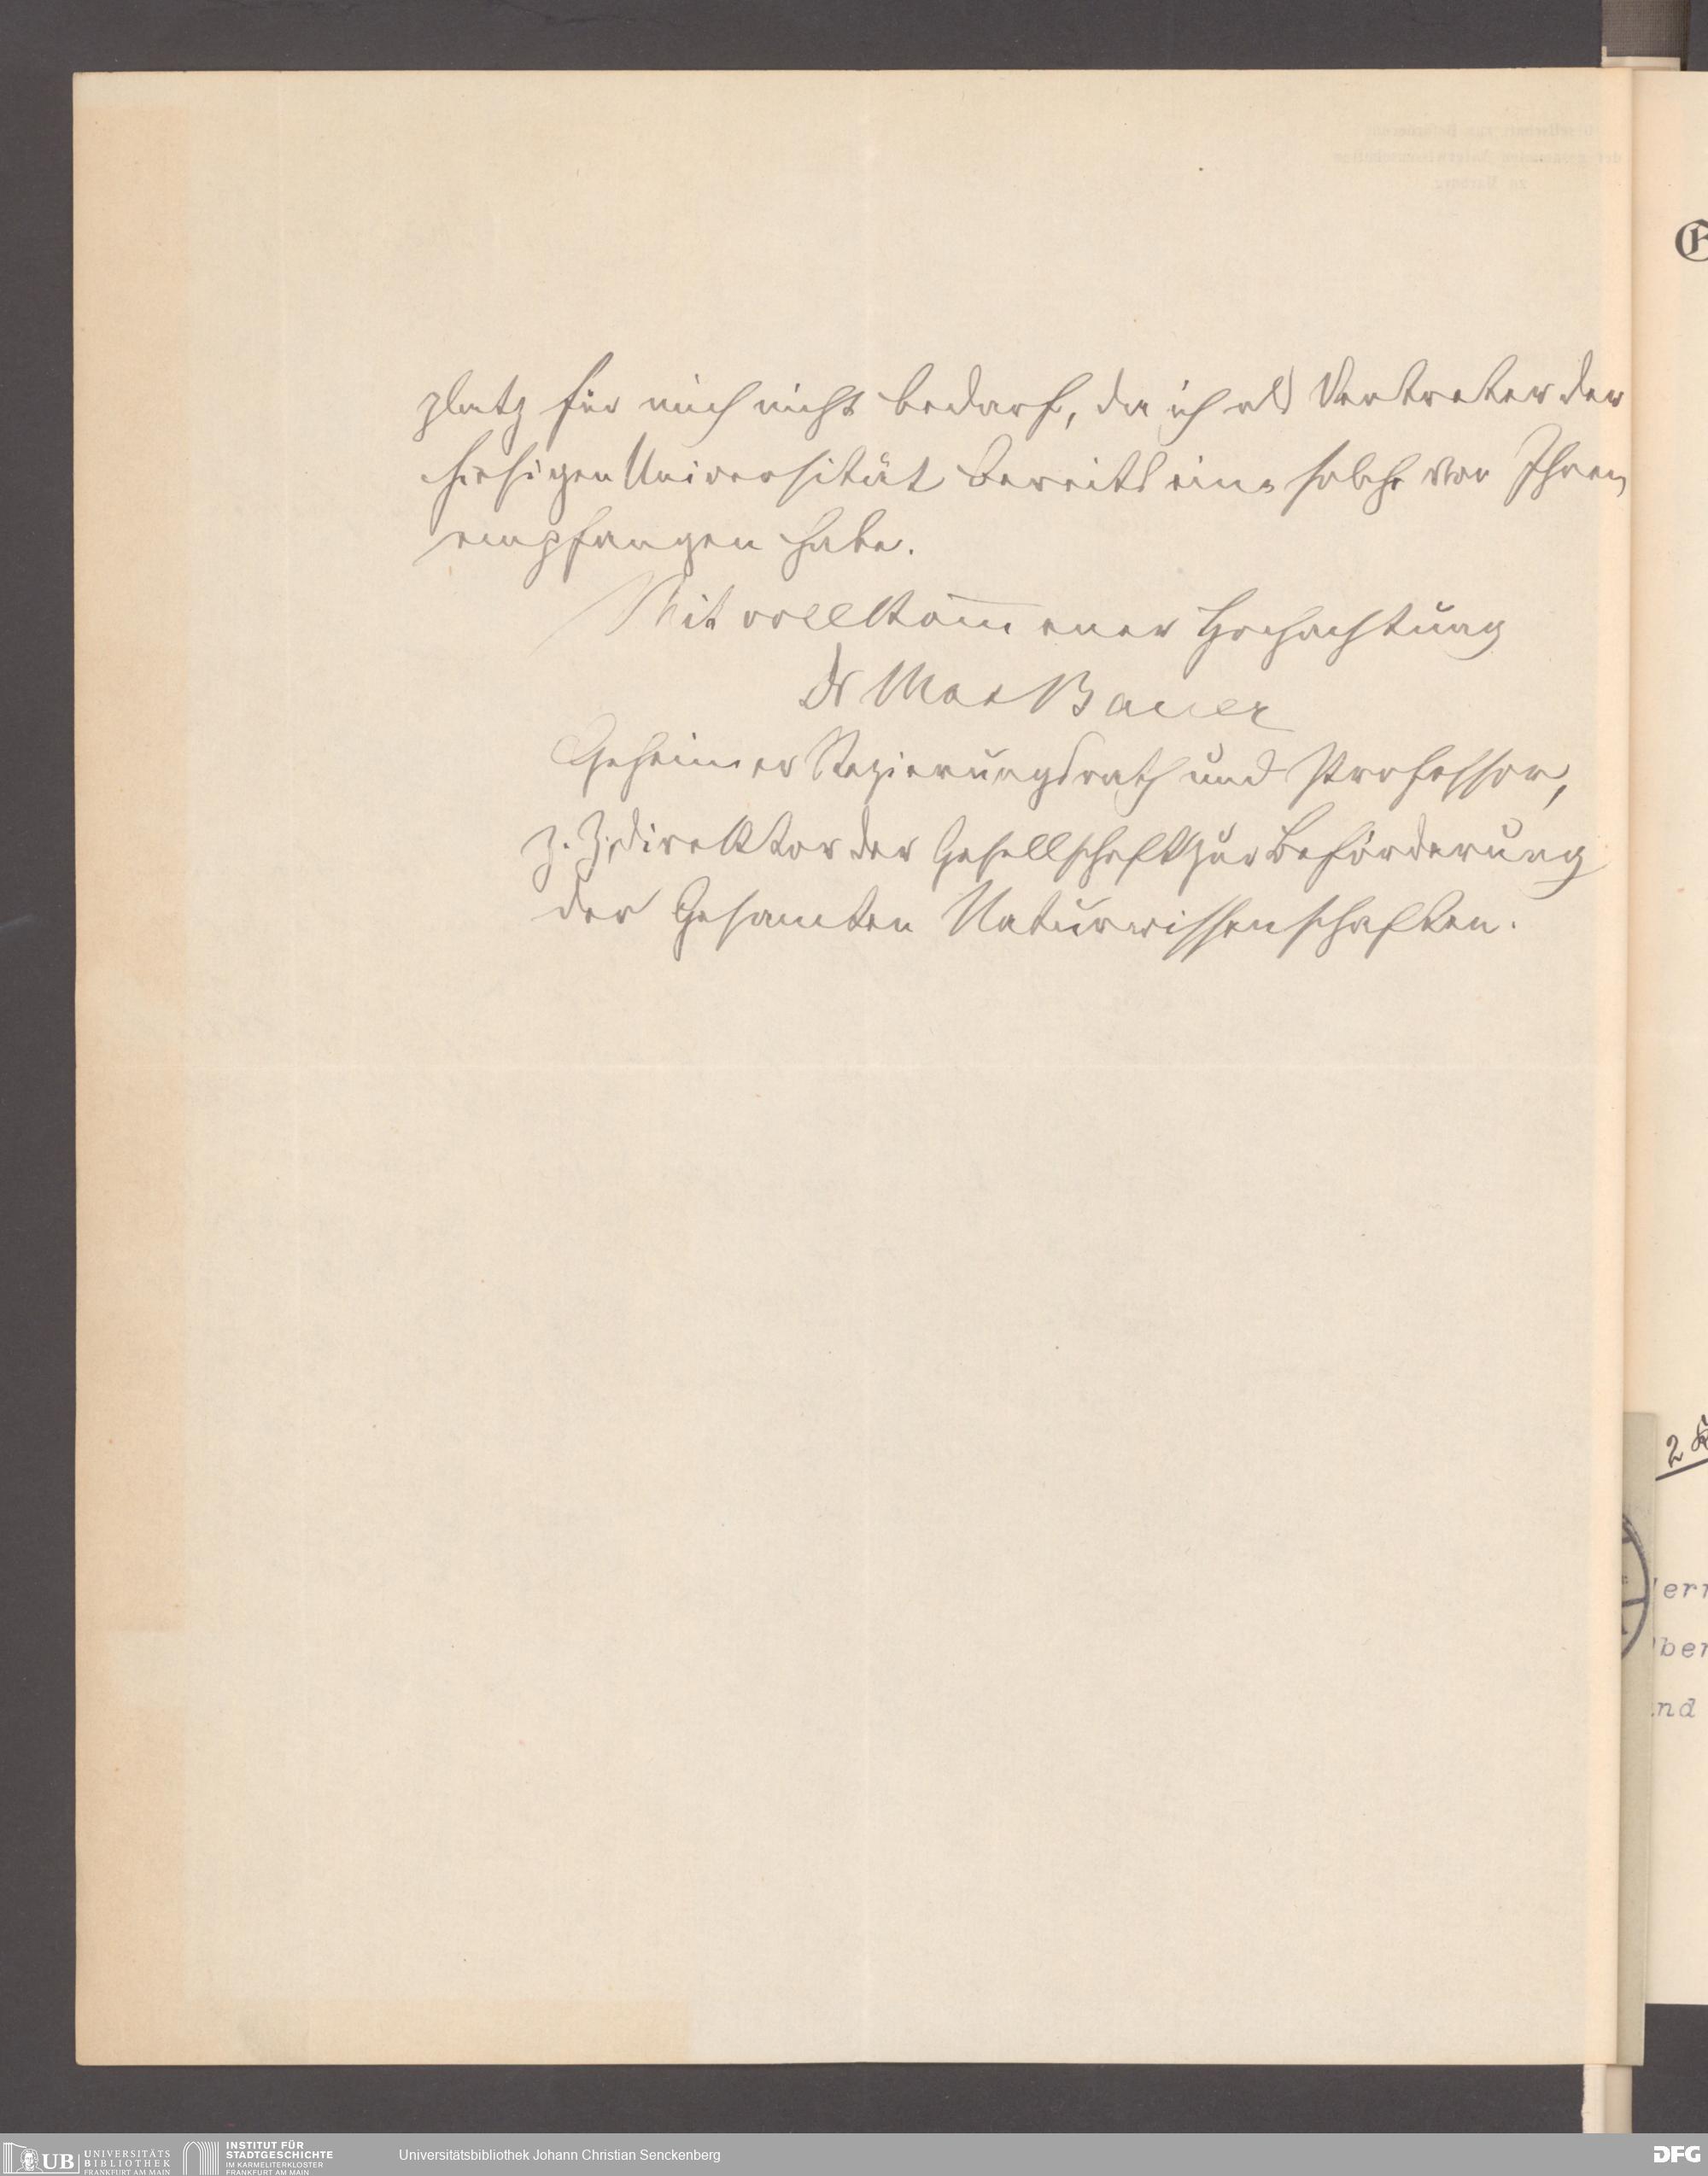 platz für mich nicht bedarf, da ich als Vertreter der
hiesigen Universität bereits eine solche von Ihnen
empfangen habe.
Mit vollkom̅ener Hochachtung
Dr Max Bauer
Geheimer Regierungsrath und Professor,
z. Z. Direktor der Gesellschaft zur Beförderung
der Gesamten Naturwissenschaften.
2
UB UNIVERSITÄTS
BIBLIOTHEK
FRANKFURT AM MAIN
INSTITUT FÜR
STADTGESCHICHTE
IM KARMELITERKLOSTER
FRANKFURT AM MAIN
Universitätsbibliothek Johann Christian Senckenberg
DFG